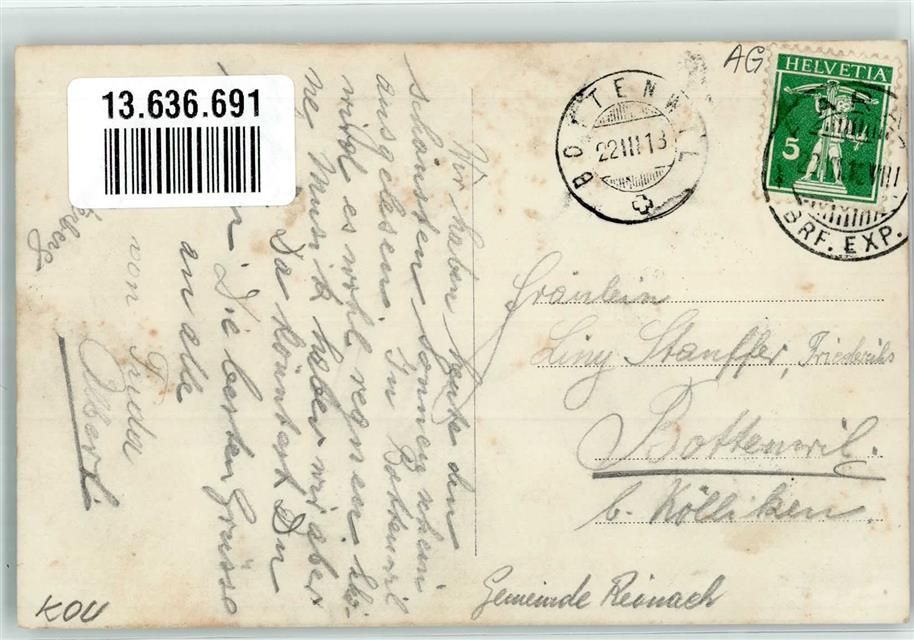 13.636.691
AG
HELVETIA
5
BOTTENWIL
22 III 13
BRF. EXP.
Wir haben heute den
schönsten sonnenschein
ausgelesen. In Bottenwil
wird es wohl regnen. Schö-
ne Musik haben wir aber
Da könntest Du
Die besten Grüsse
an alle
von Frieda
Albert
Fräulein
Liny Stauffer, Friederichs
Bottenwil.
b. Kölliken.
Gemeinde Reinach
KOU